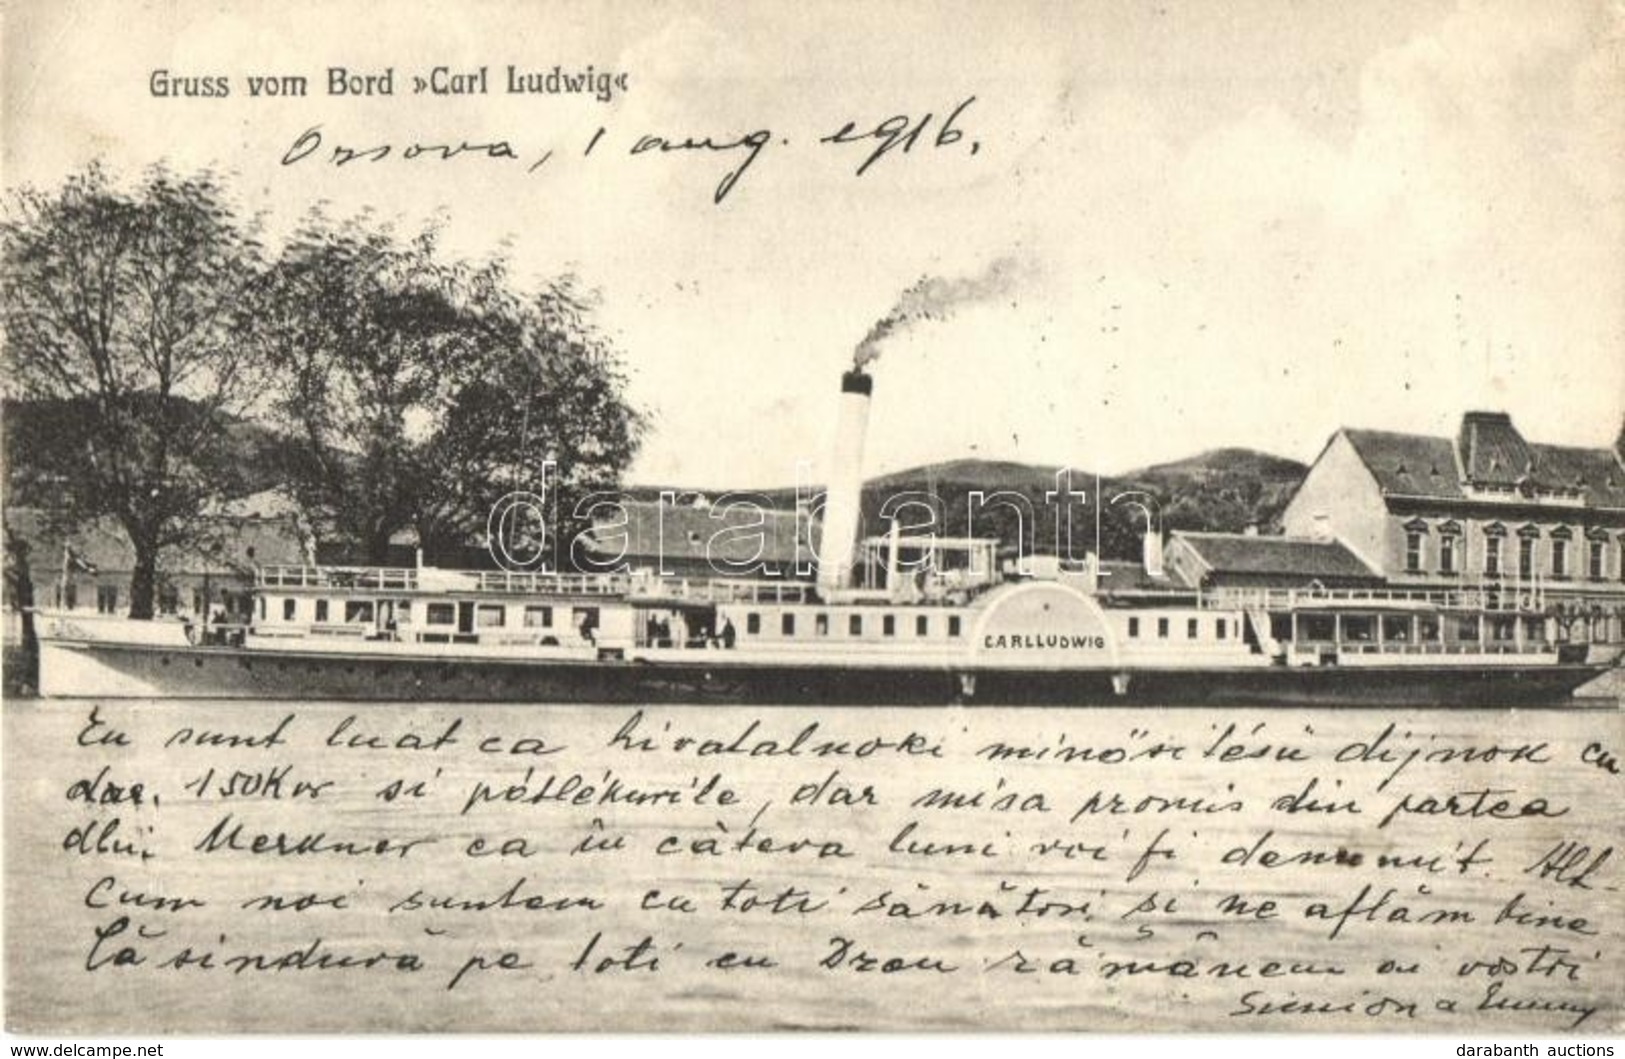 Gruss vom Bord »Carl Ludwig«
Orsova, 1 aug. 1916.
darabanth
CARLLUDWIG
Eu sunt luat ca hivatalnoki minősitésü dijnok cu
150 Kor si pótlékurile, dar mi sa promis din partea
dlui Merkner ca în câteva luni voi fi denumit. Alt-
cum noi suntem cu toti sănători și ne aflăm bine
Lăsindură pe toti cu Dzeu rămânem ai vostri
Simion a Emmy
darabanth auctions
www.delcampe.net